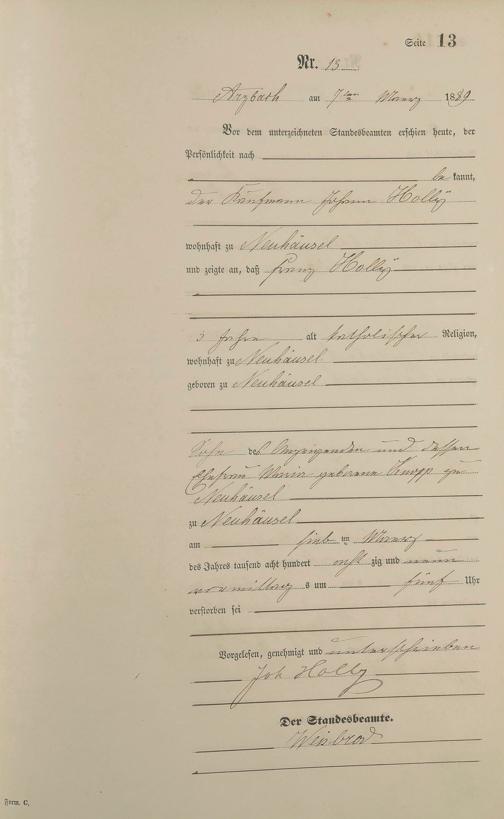 Seite 13
Nr. 13
Arzbach am 7ten Maerz 1889
Vor dem unterzeichneten Standesbeamten erschien heute, der
Persönlichkeit nach
be kannt,
der Kaufmann Johann Holly
wohnhaft zu Neuhäusel
und zeigte an, daß Franz Holly
3 Jahre alt katholischer Religion,
wohnhaft zu Neuhäusel
geboren zu Neuhäusel
Sohn des Anzeigenden und dessen
Ehefrau Maria geborene Knopp zu
Neuhäusel
zu Neuhäusel
am sieb ten Maerz
des Jahres tausend acht hundert acht zig und neun
vormittag s um fünf Uhr
verstorben sei
Vorgelesen, genehmigt und unterschrieben
Joh Holly
Der Standesbeamte.
Weisbrod
Form. C.